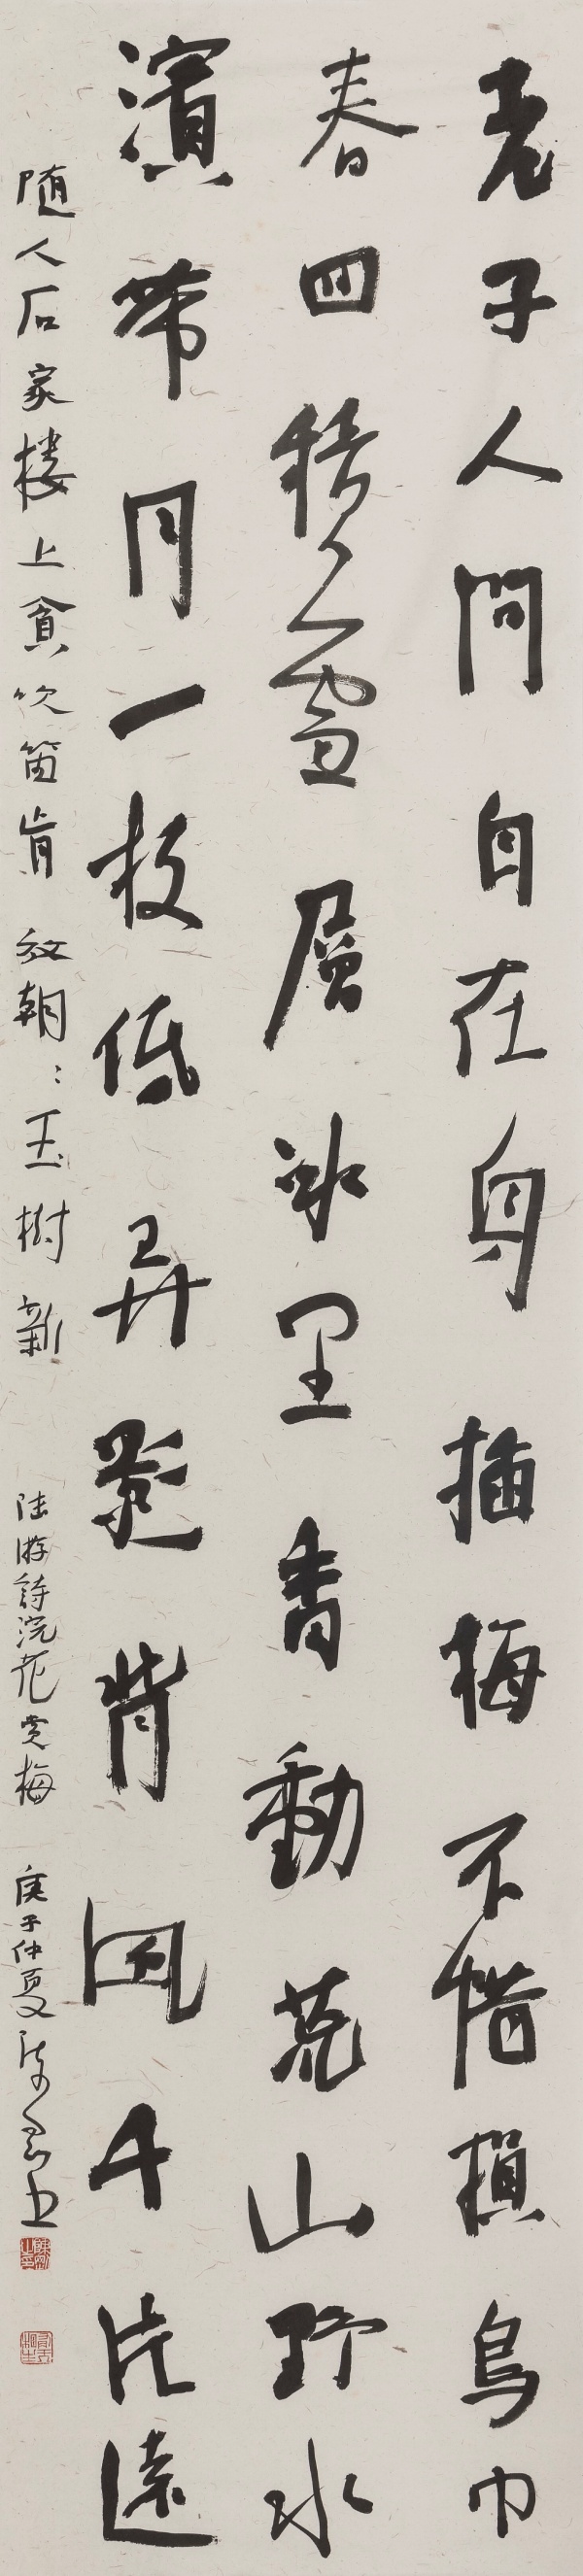 老子人間自在身插梅不惜損烏巾
春回積雪層冰里香動荒山野水
濱帶月一枝低弄影背風千片遠
随人石家楼上貪吹笛肯放朝〻玉樹新 陸游詩浣花賞梅 庚子仲夏